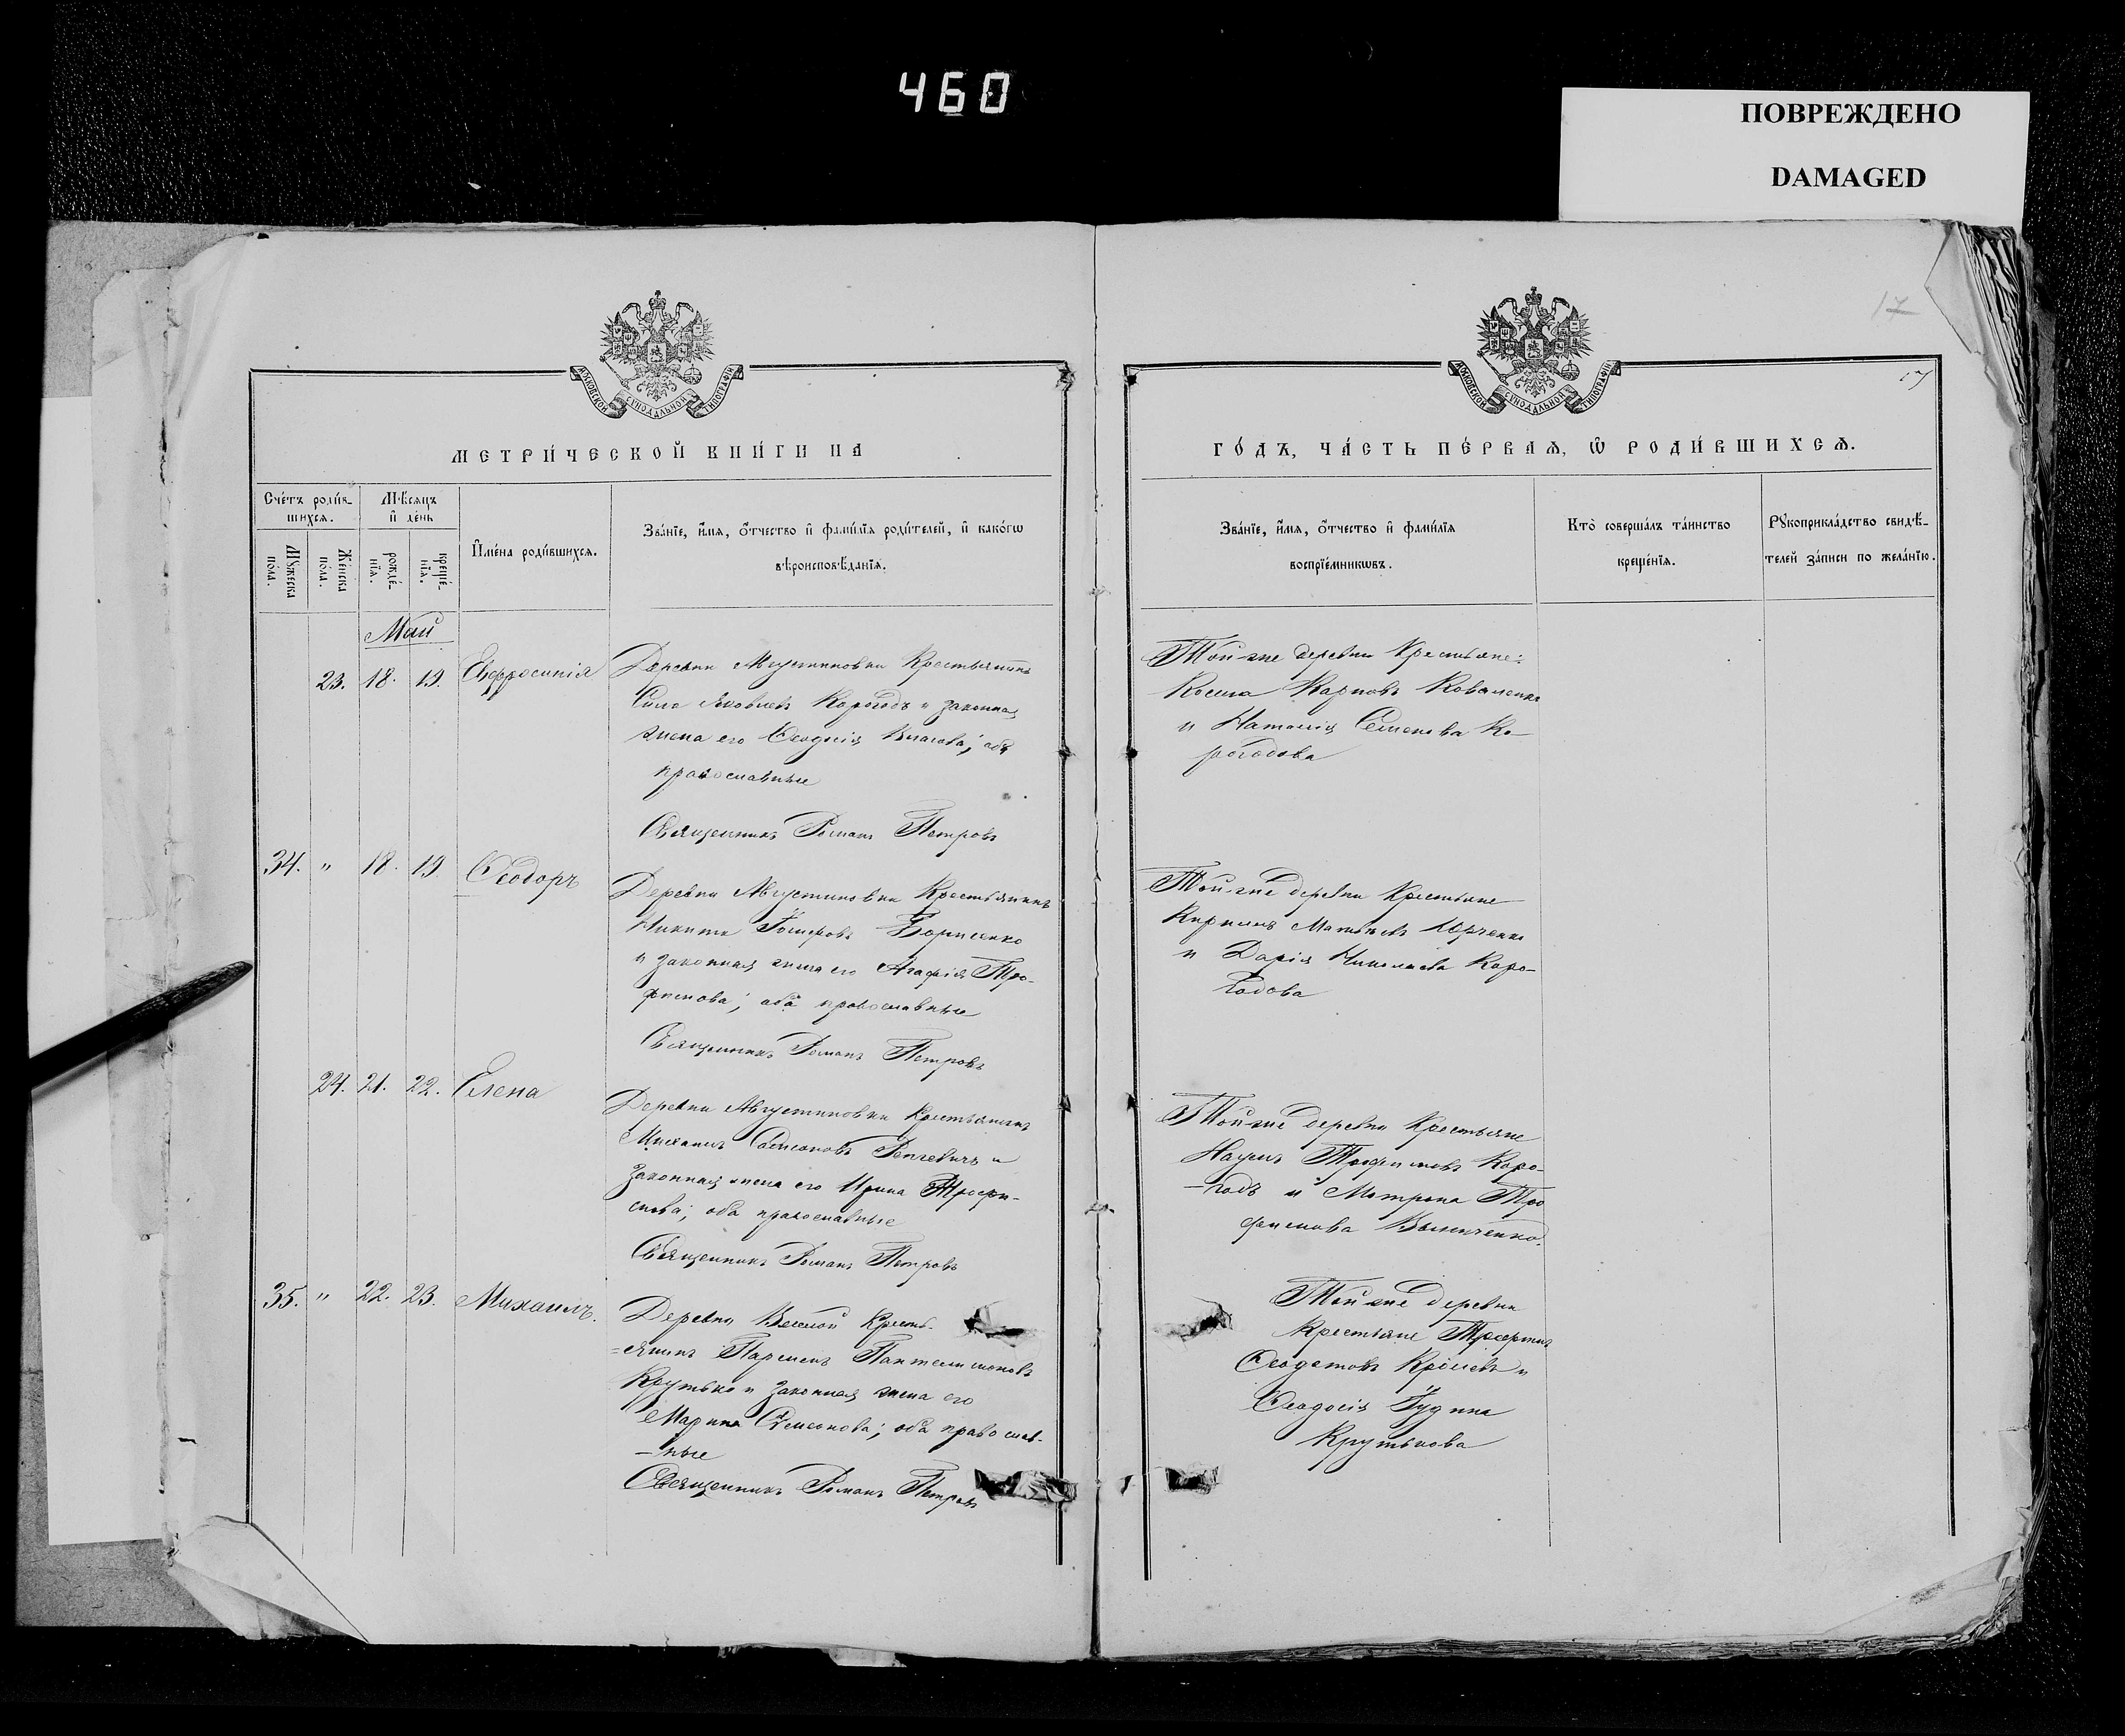 460
ПОВРЕЖДЕНО
DAMAGED
17
17
МОСКОВСКОЙ СѴНОДАЛЬНОЙ ТИПОГРАФІИ
МОСКОВСКОЙ СѴНОДАЛЬНОЙ ТИПОГРАФІИ
МЕТРИ́ЧЕСКОЙ КНИ́ГИ НА
ГО́ДЪ, ЧА́СТЬ ПЕ́РВАѦ, Ѡ҆ РОДИ́ВШИХСѦ.
Сче́тъ роди́в-
шихсѧ.
Мꙋ́жеска
по́ла.
Же́нска
по́ла.
Мѣ́сяцъ
и҆ де́нь
рожде́-
нїѧ.
креще́-
нїѧ.
И҆мена̀ роди́вшихсѧ.
Зва́нїе, и҆́мѧ, ѻ҆́тчество и҆ фами́лїѧ роди́телей, и҆ како́гѡ
вѣроисповѣ́данїѧ.
Зва́нїе, и҆́мѧ, ѻ҆́тчество и҆ фами́лїѧ
воспрїе́мникѡвъ.
Кто̀ соверша́лъ та́инство
креще́нїѧ.
Рꙋкоприкла́дство свидѣ́-
телей за́писи по жела́нїю.
Май
23. 18. 19. Евфросинія
Деревни Августиновки Крестьянинъ
Сила Яковлевъ Корогодъ и законная
жена его Ѳеодосія Власова; оба
православные
Священникъ Романъ Петровъ
Той же деревни Крестьяне:
Косма Карповъ Коваленко
и Наталія Семенова Ко-
рогодова
34. " 18. 19. Ѳеодоръ
Деревни Августиновки Крестьянинъ
Никита Борисенко
и законная жена его Агафія Тро-
фимова; оба православные
Священникъ Романъ Петровъ
Той же деревни Крестьяне
Кириллъ Матвѣевъ Юрченко
и Дарія Николаева Коро-
годова
24. 21. 22. Елена
Деревни Августиновки Крестьянинъ
Михаилъ Самсоновъ и
законная жена его Ирина Трофи-
мова; оба православные
Священникъ Романъ Петровъ
Той же деревни Крестьяне
Наумъ Трофимовъ Коро-
-годъ и Матрона Тро
фимова
35. " 22. 23. Михаилъ.
Деревни Веселой Кресть-
=янинъ Парменъ Пантелимоновъ
Крутько и законная жена его
Марина Семенова; оба православ-
-ные
Священникъ Романъ Петровъ
Той же деревни
Крестьяне
и
Ѳеодосія
Крутькова